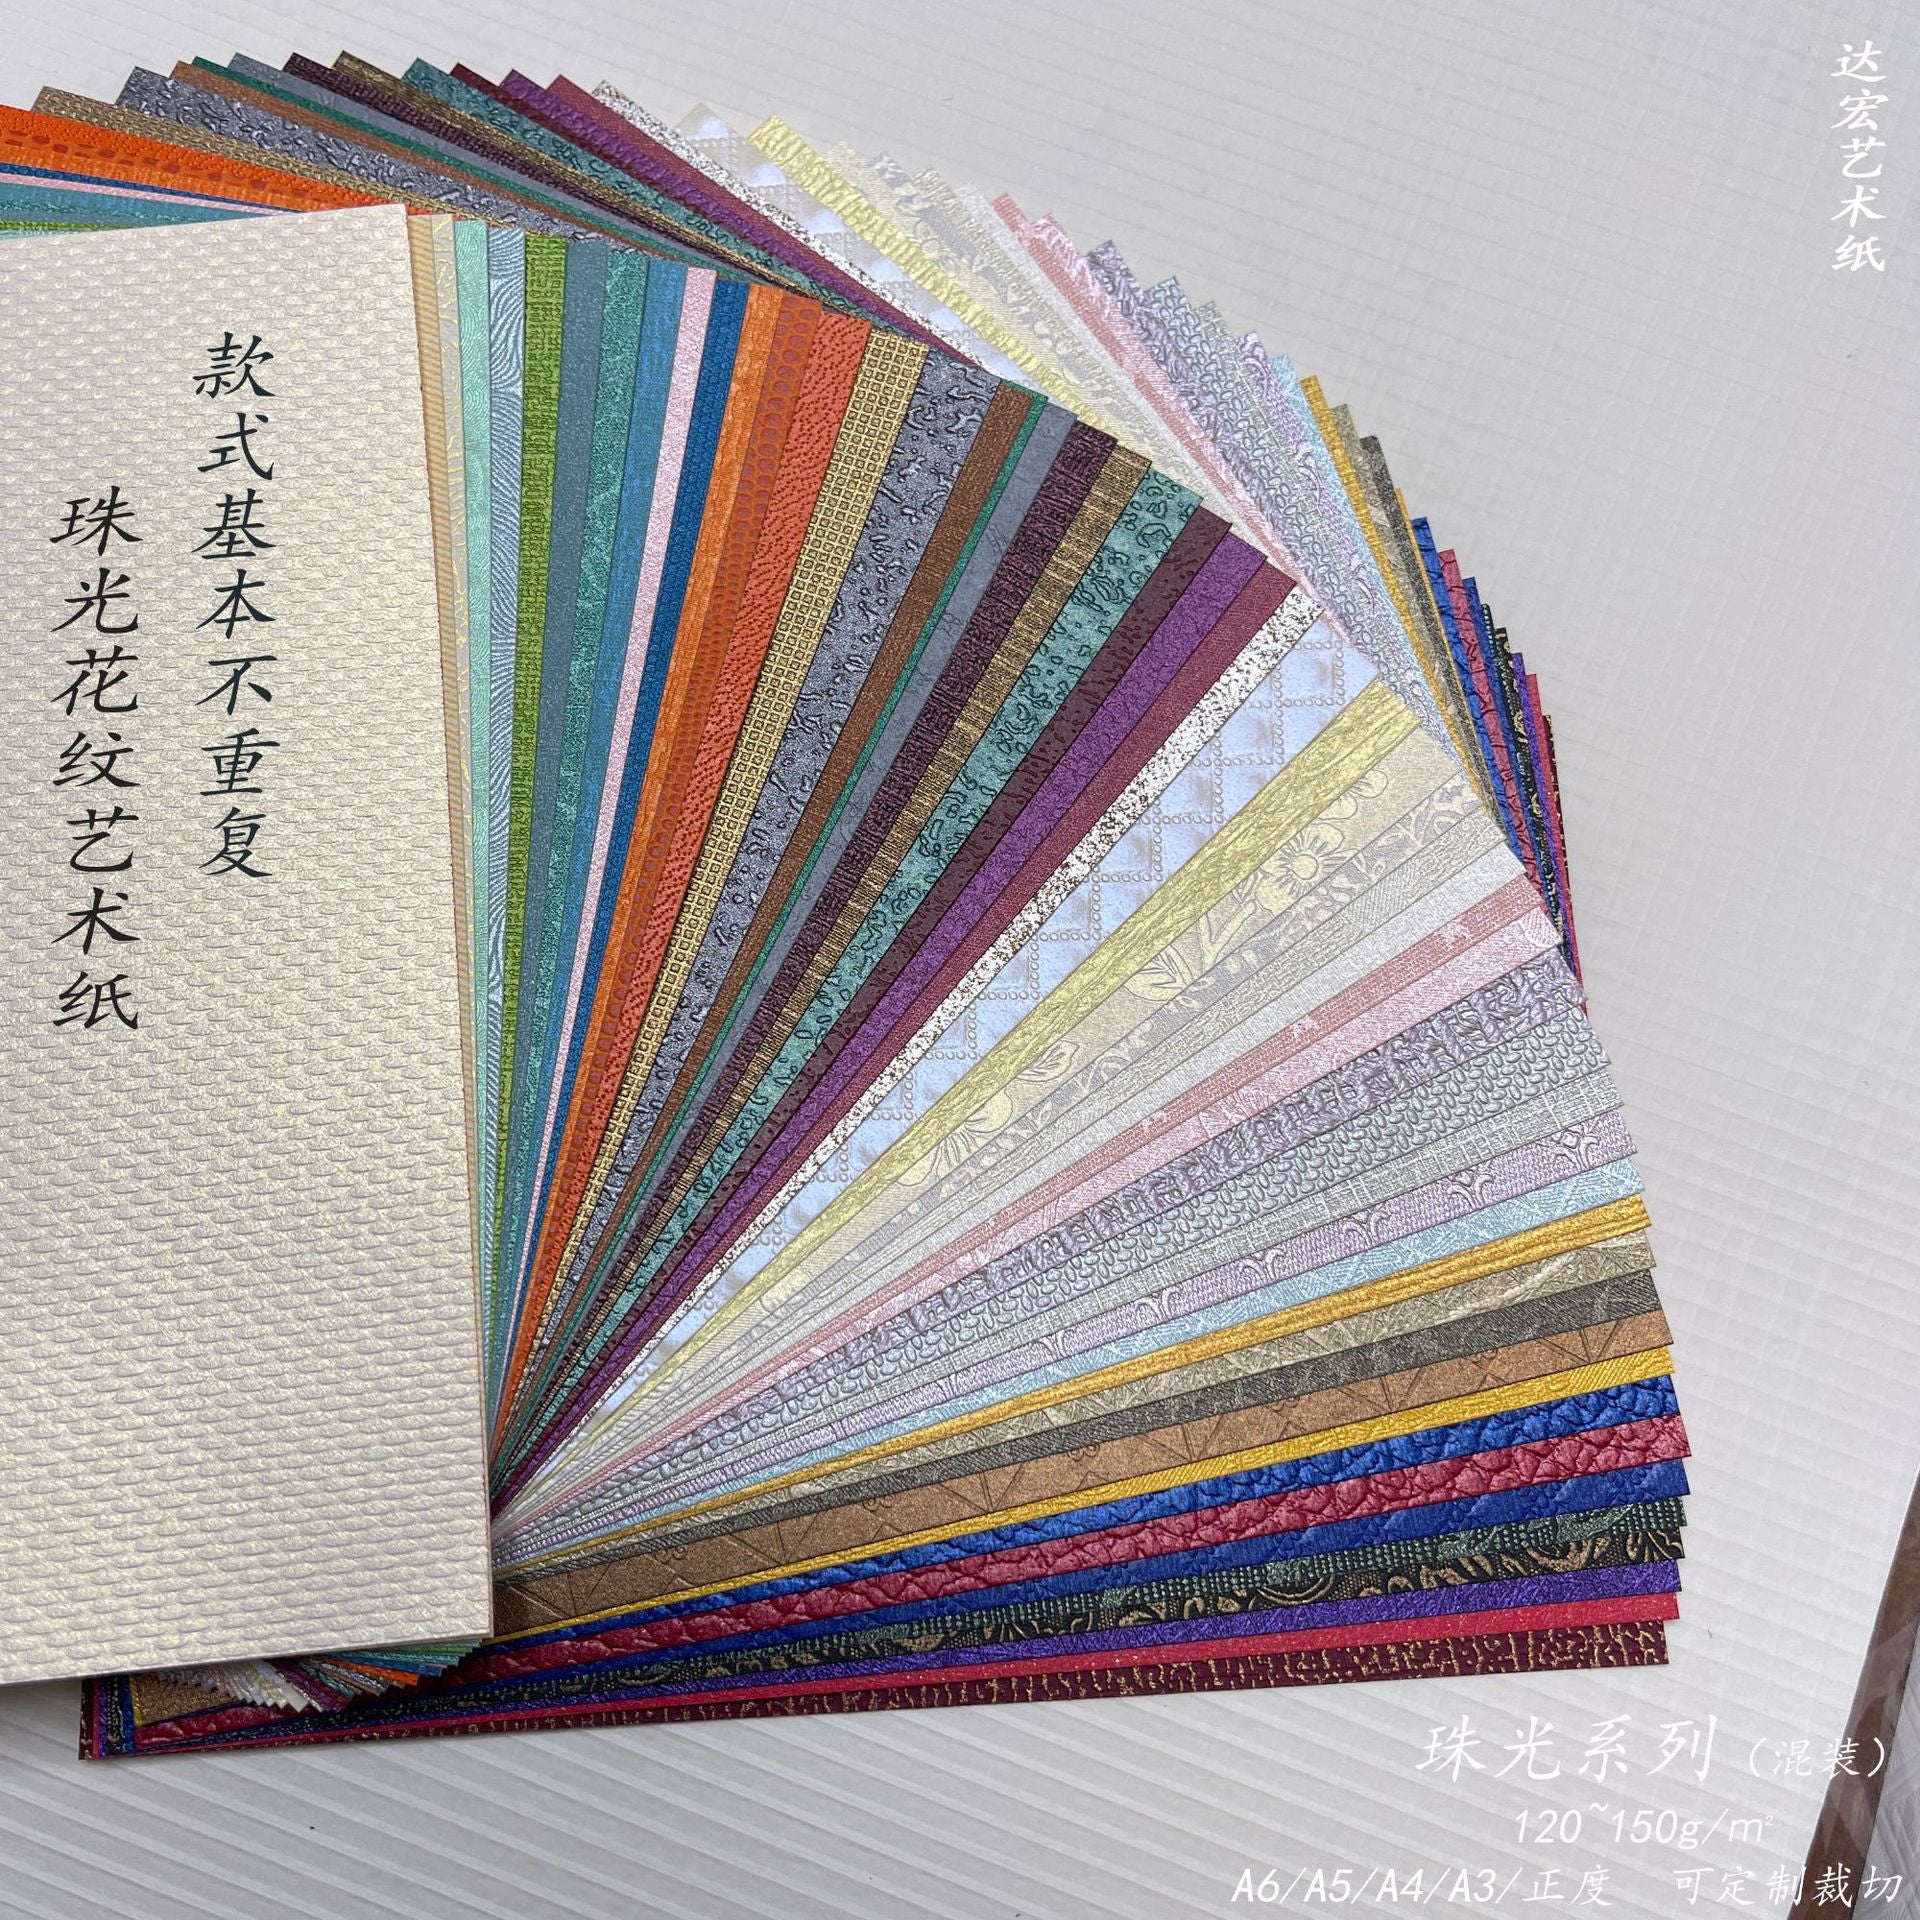 达宏艺术纸
款式基本不重复
珠光花纹艺术纸
珠光系列（混装）
120~150g/㎡
A6/A5/A4/A3/正度 可定制裁切